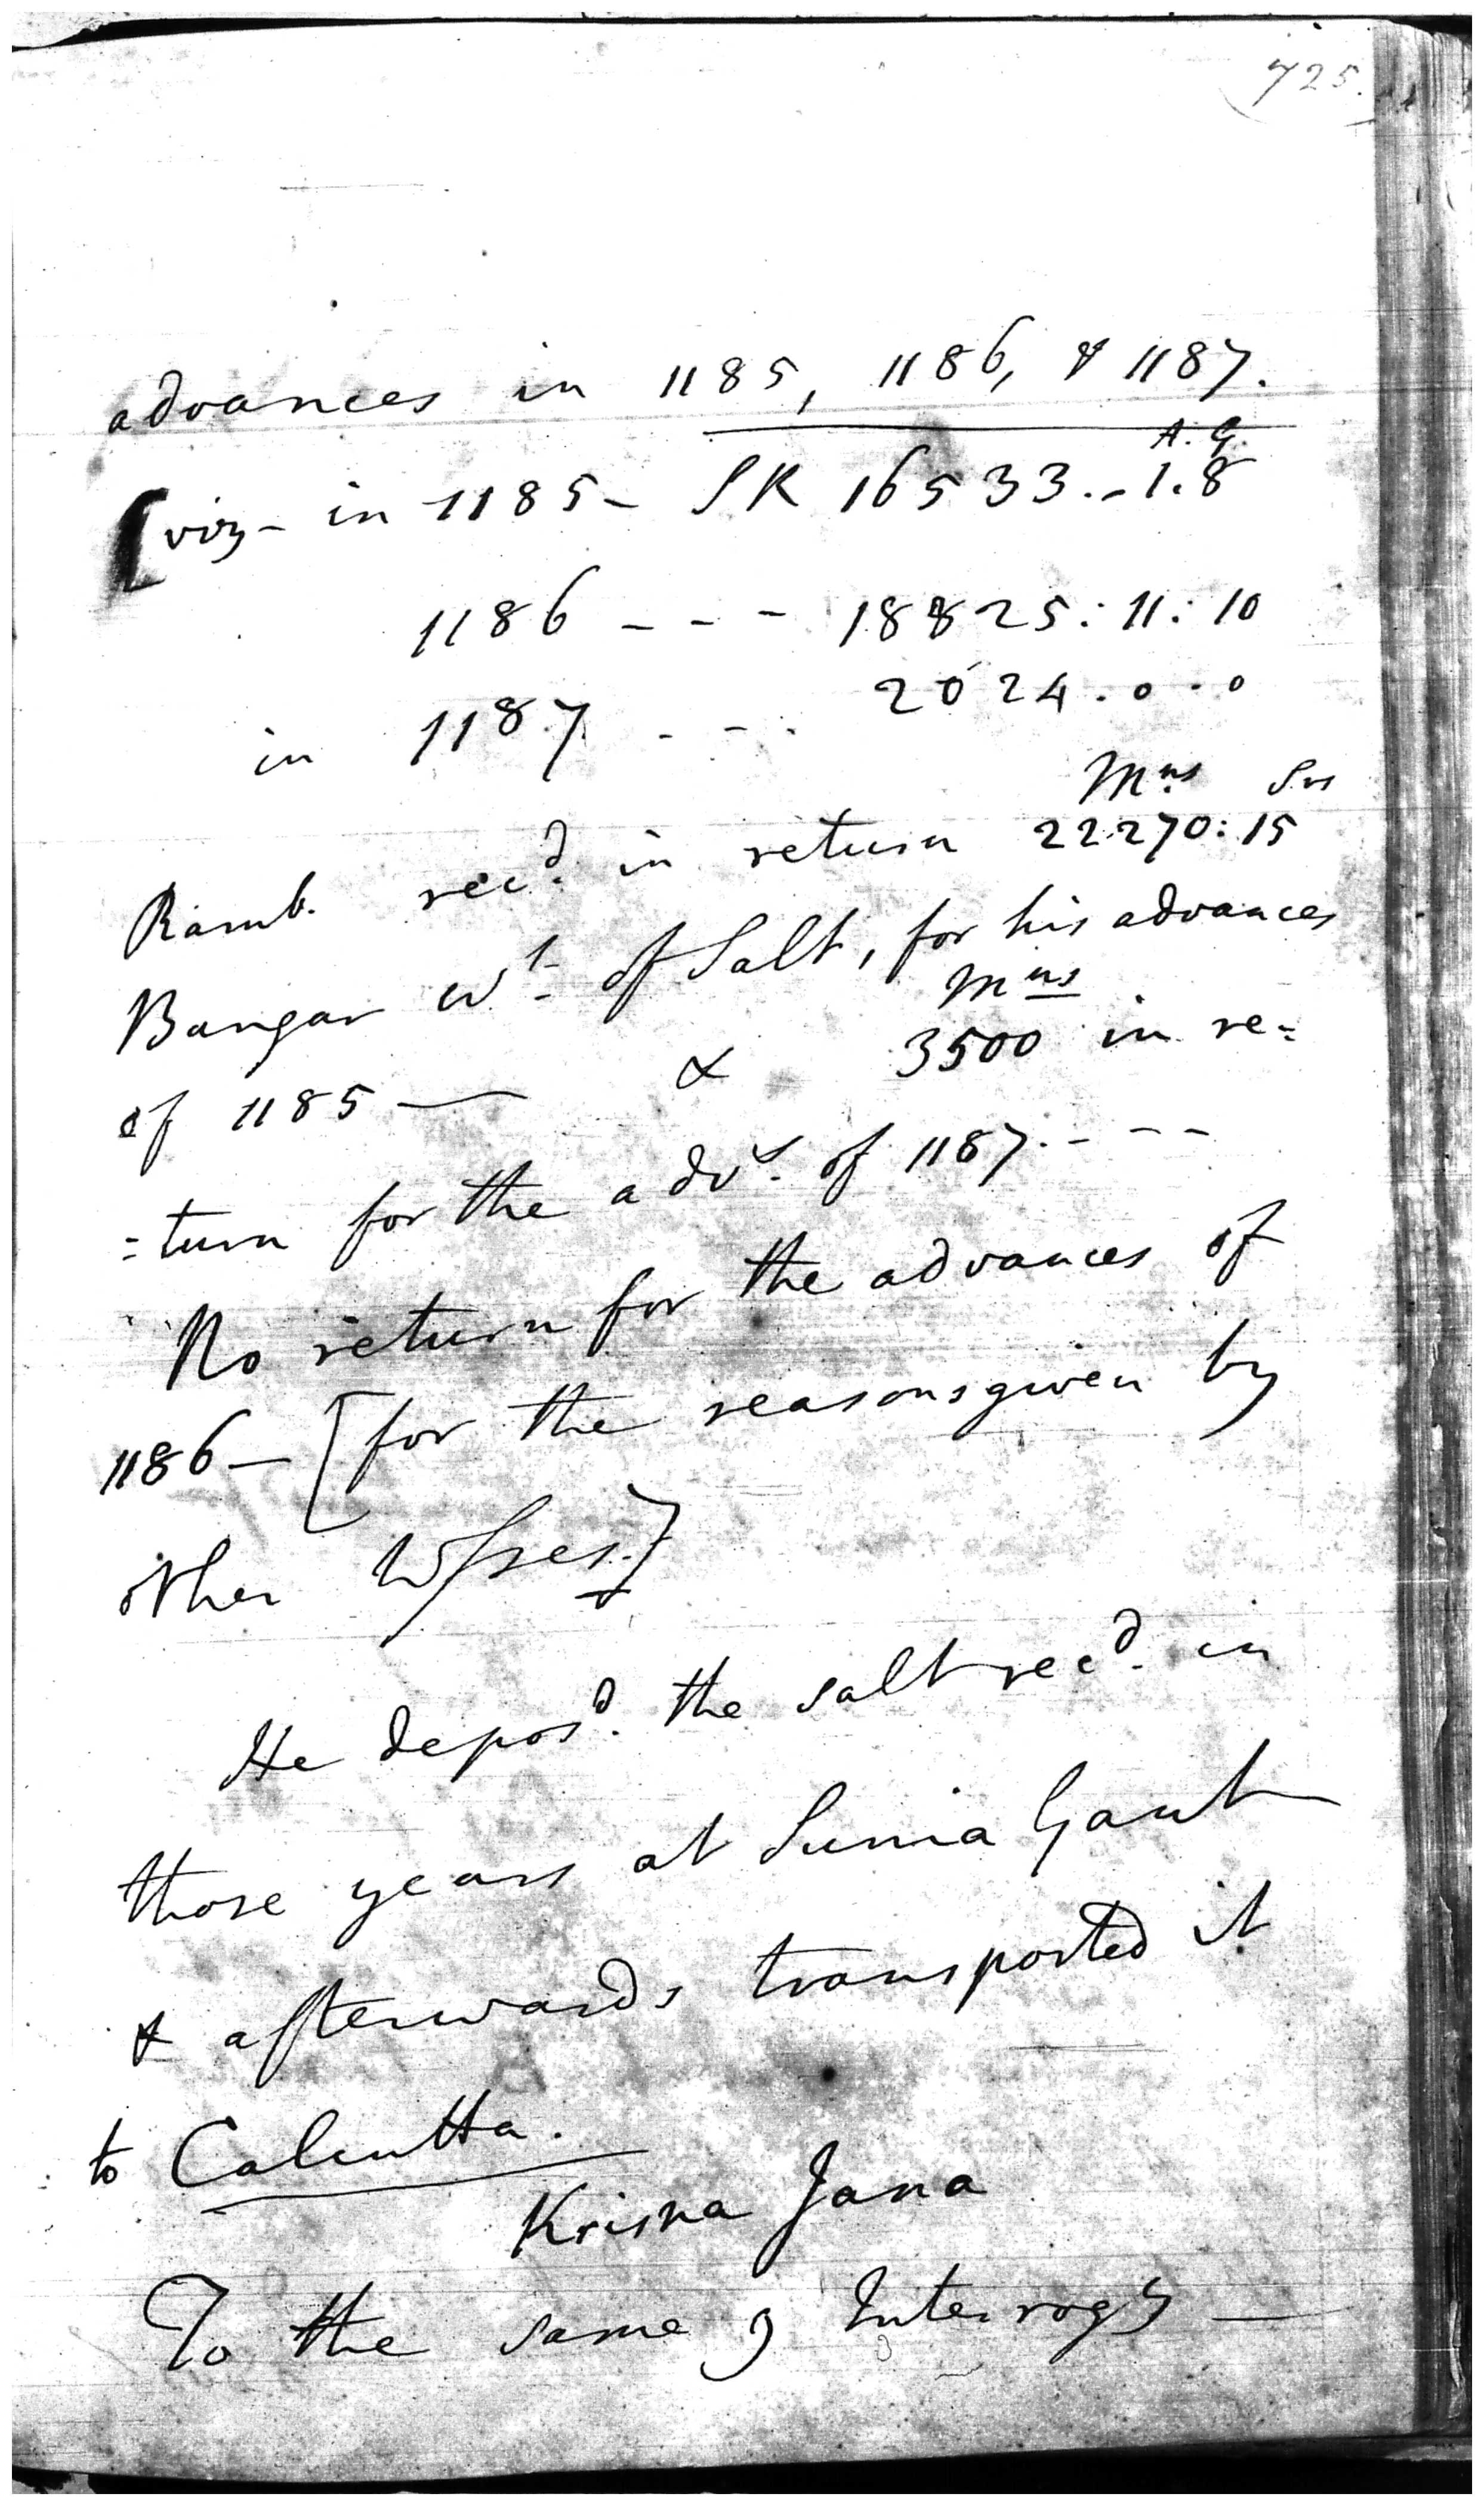 725.
advances in 1185, 1186, & 1187.
A. G.
[viz- in 1185- SR 16533.-1.8
1186 - - - 18825:11:10
in 1187 - - . 2024.0..0
Mns Srs
Ramb. recd. in return 22270:15
Bangar wt. of Salt, for his advances
Mns
of 1185 — & 3500 in re=
=turn for the advs. of 1187. - - -
No return for the advances of
1186- [for the reasons given by
other Wsses.]
He deposd. the salt recd. in
those years at Sunia Gaut
& afterwards transported it
to Calcutta.
Krisna Jana
To the same 9 Interrogy —